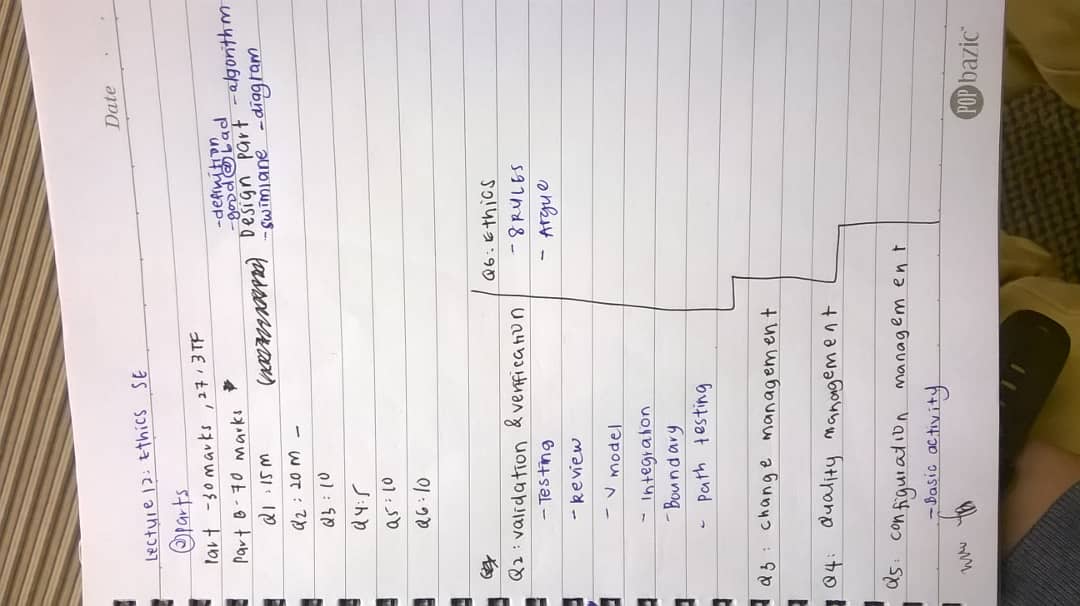 Date
Lecture 12: Ethics SE
② parts
Part -30 marks, 27. 3TF
Part B - 70 marks
- definition
- good @ bad
Design part - algorithm
- swimlane - diagram
Q1 : 15 m
Q2 : 20 m -
Q3 : 10
Q4 : 5
Q5 : 10
Q6 : 10
Q2 : validation & verification
- Testing
- Review
- V model
- Integration
- Boundary
- path testing
Q3 : change management
Q4 : Quality management
Q5 : configuration management
- Basic activity
Q6 : Ethics
- 8 RULES
- Argue
POP bazic